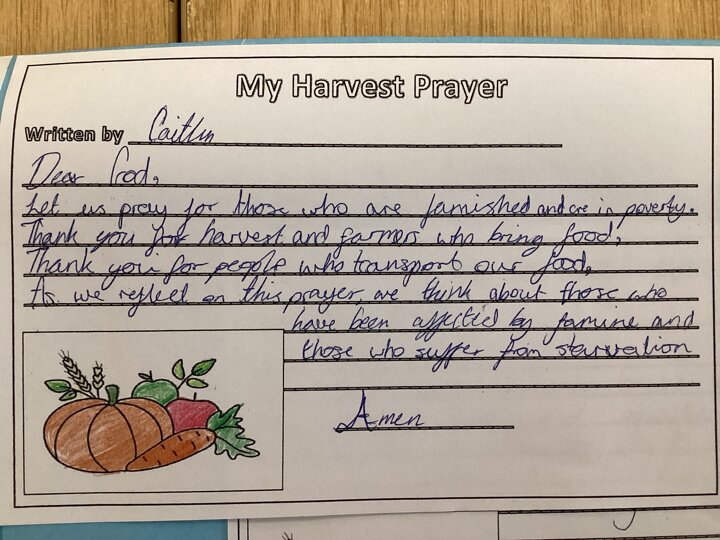 My Harvest Prayer
Written by Caitlin
Dear God,
Let us pray for those who are famished and are in poverty.
Thank you for harvest and farmers who bring food,
Thank you for people who transport our food,
As we reflect on this prayer, we think about those who
have been affected by famine and
those who suffer from starvation
Amen